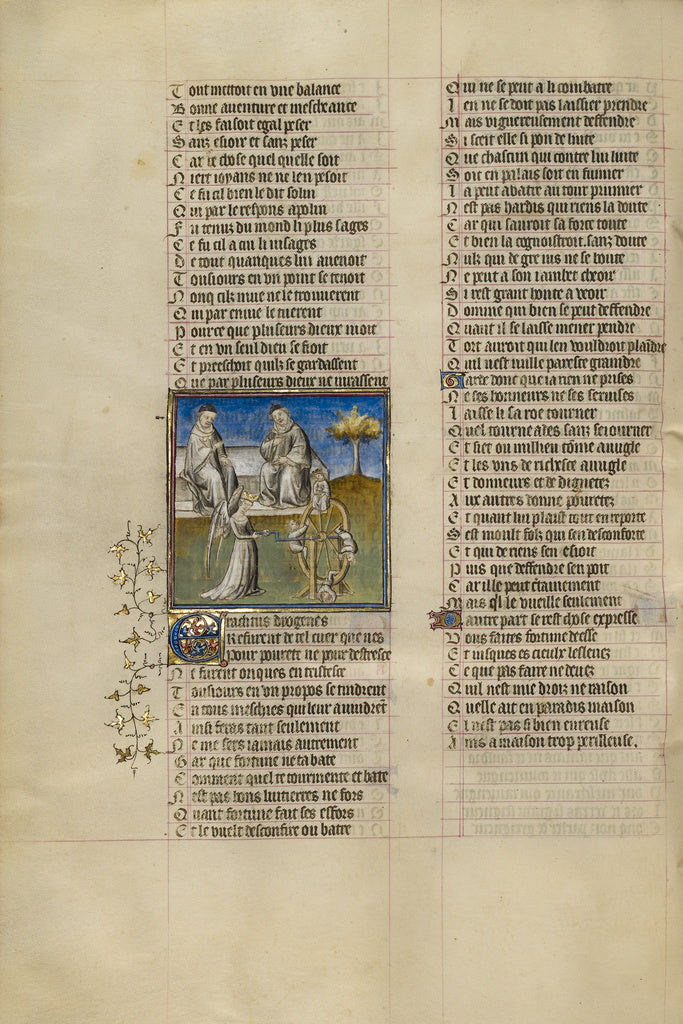 Tout mettoit en vne balance
Bonne auenture et mescheance
Et les faisoit egal peser
Sanz esioir et sanz peser
Car ie chose quel quelle soit
Niert ioyans ne ne len pesoit
Ce fu cil bien le dit solin
Qui par le respons apolin
Fu tenuz du mond li plus sages
Ce fu cil a cui li uisages
De tout quanques lui auenoit
Tousiours en vn point se tenoit
Nonq cilz mue ne le trouuerent
Qui par enuie le tuerent
Pource que pluseurs dieux nioit
Et en vn seul dieu se fioit
Et preeschoit quilz se gardassent
Que par pluseurs dieux ne iurassent
Eraclitus diogenes
Refurent de tel cuer que nes
Pour pourete ne pour destresce
Ne furent onques en tristesce
Tousiours en vn propos se tindrent
En tous meschies qui leur auindrent
Ainsi feras tant seulement
Ne me sers iamais autrement
Gar que fortune ne ta bate
Comment quel te tourmente et bate
Nest pas bons luitierres ne fors
Quant fortune fait ses effors
Et le vuelt desconfire ou batre
Qui ne se peut a li combatre
Len ne se doit pas laissier prendre
Mais viguereusement deffendre
Si scet elle si pou de luite
Que chascun qui contre lui luite
Soit en palais soit en fumier
La peut abatre au tour primier
Nest pas hardis qui riens la doute
Car qui sauroit sa force toute
Et bien la cognoistroit sanz doute
Nulz qui de gre ius ne se boute
Ne peut a son iambet cheoir
Si rest grant honte a veoir
Domme qui bien se peut deffendre
Quant il se laisse mener pendre
Tort auroit qui len vouldroit plaindre
Quil nest nulle paresce graindre
Garde donc que ia rien ne prises
Ne ses honneurs ne ses seruises
Laisse li sa roe tourner
Quel tourne ades sanz seiourner
Et siet ou milieu come auugle
Et les vns de richesce auugle
Et donneurs et de dignetez
Aux autres donne pouretez
Et quant lui plaist tout en reporte
Sest moult folz qui sen desconforte
Et qui de riens sen esioit
Puis que deffendre sen poit
Car ille peut certainement
Mais quil le vueille seulement
Dautre part se rest chose expresse
Vous faites fortune deesse
Et iusques es cieulx lesleuez
Ce que pas faire ne deuez
Quil nest mie droiz ne raison
Quelle ait en paradis maison
El nest pas si bien eureuse
Ains a maison trop perilleuse.